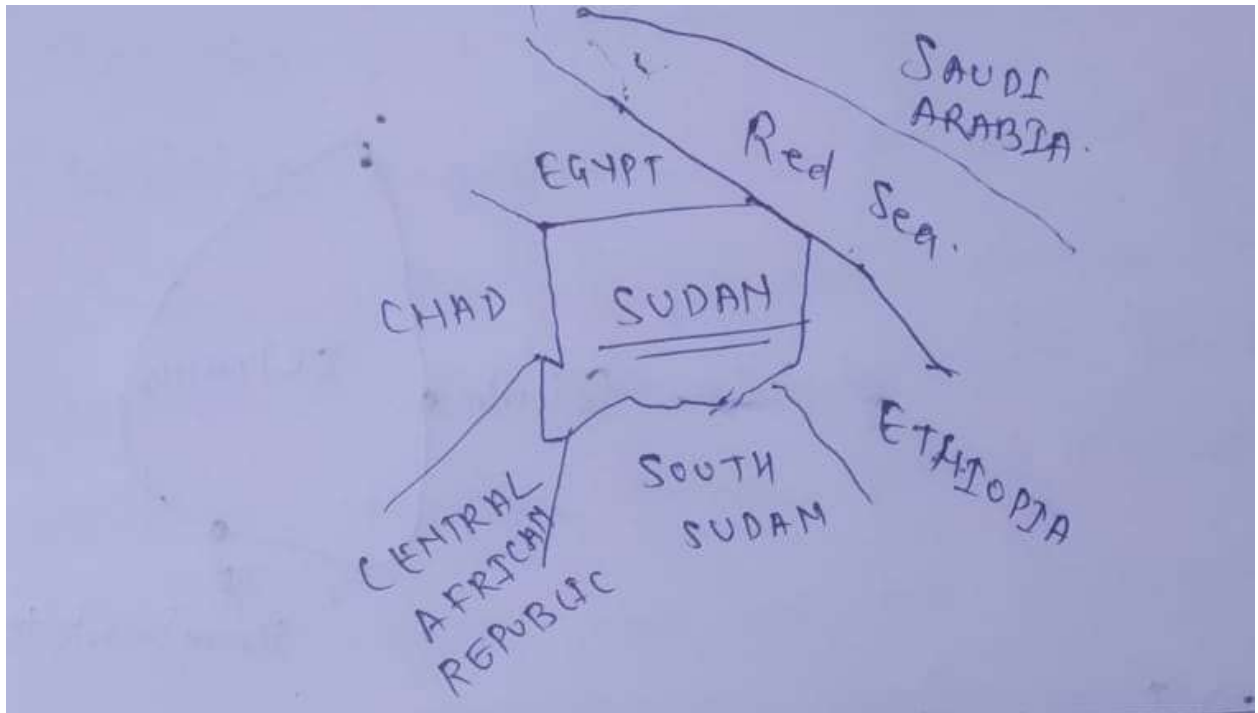 SAUDI
ARABIA.
Red Sea.
EGYPT
CHAD
SUDAN
ETHIOPIA
SOUTH
SUDAN
CENTRAL
AFRICAN
REPUBLIC